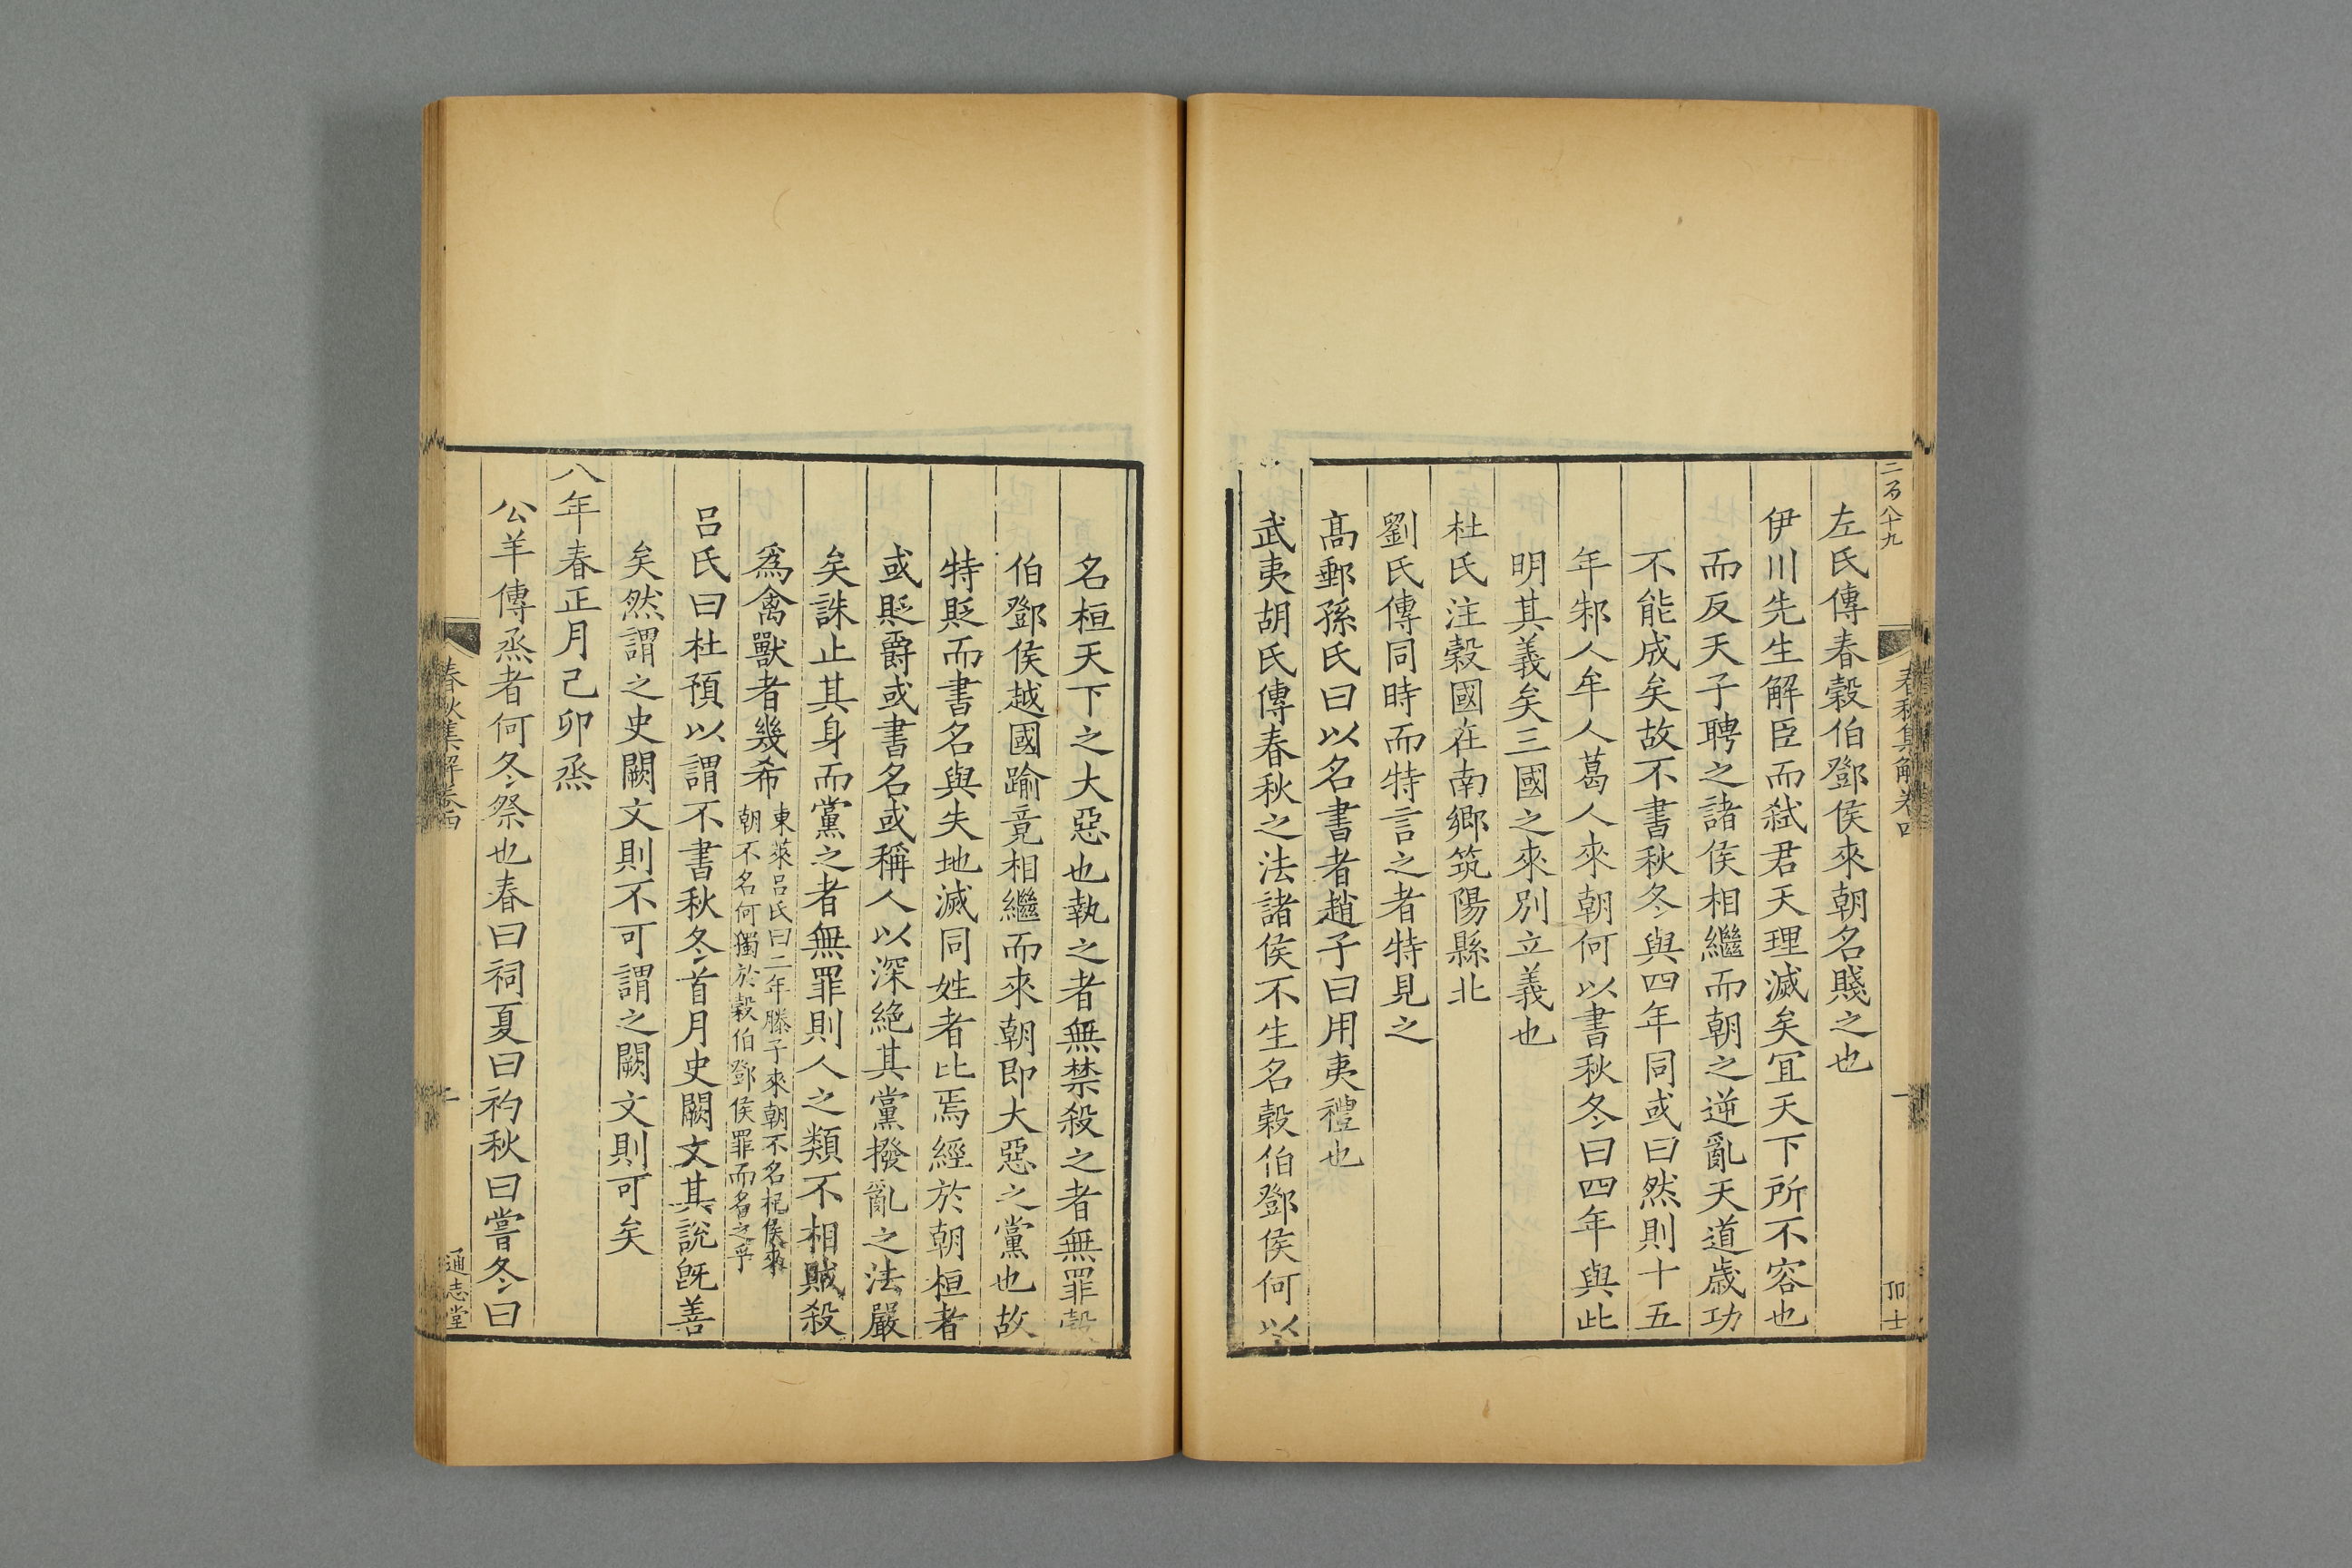 二百八十九
春秋集解卷四
一
左氏傳春穀伯鄧侯來朝名賤之也
伊川先生解臣而弑君天理滅矣宜天下所不容也
而反天子聘之諸侯相繼而朝之逆亂天道歲功
不能成矣故不書秋冬與四年同或曰然則十五
年邾人牟人葛人來朝何以書秋冬曰四年與此
明其義矣三國之來別立義也
杜氏注穀國在南鄉筑陽縣北
劉氏傳同時而特言之者特見之
髙郵孫氏曰以名書者趙子曰用夷禮也
武夷胡氏傳春秋之法諸侯不生名穀伯鄧侯何以
名桓天下之大惡也執之者無禁殺之者無罪穀
伯鄧侯越國踰竟相繼而來朝即大惡之黨也故
特貶而書名與失地滅同姓者比焉經於朝桓者
或貶爵或書名或稱人以深絶其黨撥亂之法嚴
矣誅止其身而黨之者無罪則人之類不相賊殺
爲禽獸者幾希
東萊呂氏曰二年滕子來朝不名杞侯來
朝不名何獨於穀伯鄧侯罪而名之乎
呂氏曰杜預以謂不書秋冬首月史闕文其說旣善
矣然謂之史闕文則不可謂之闕文則可矣
八年春正月己卯烝
公羊傳烝者何冬祭也春曰祠夏曰礿秋曰嘗冬曰
春秋集解卷四
二
通志堂